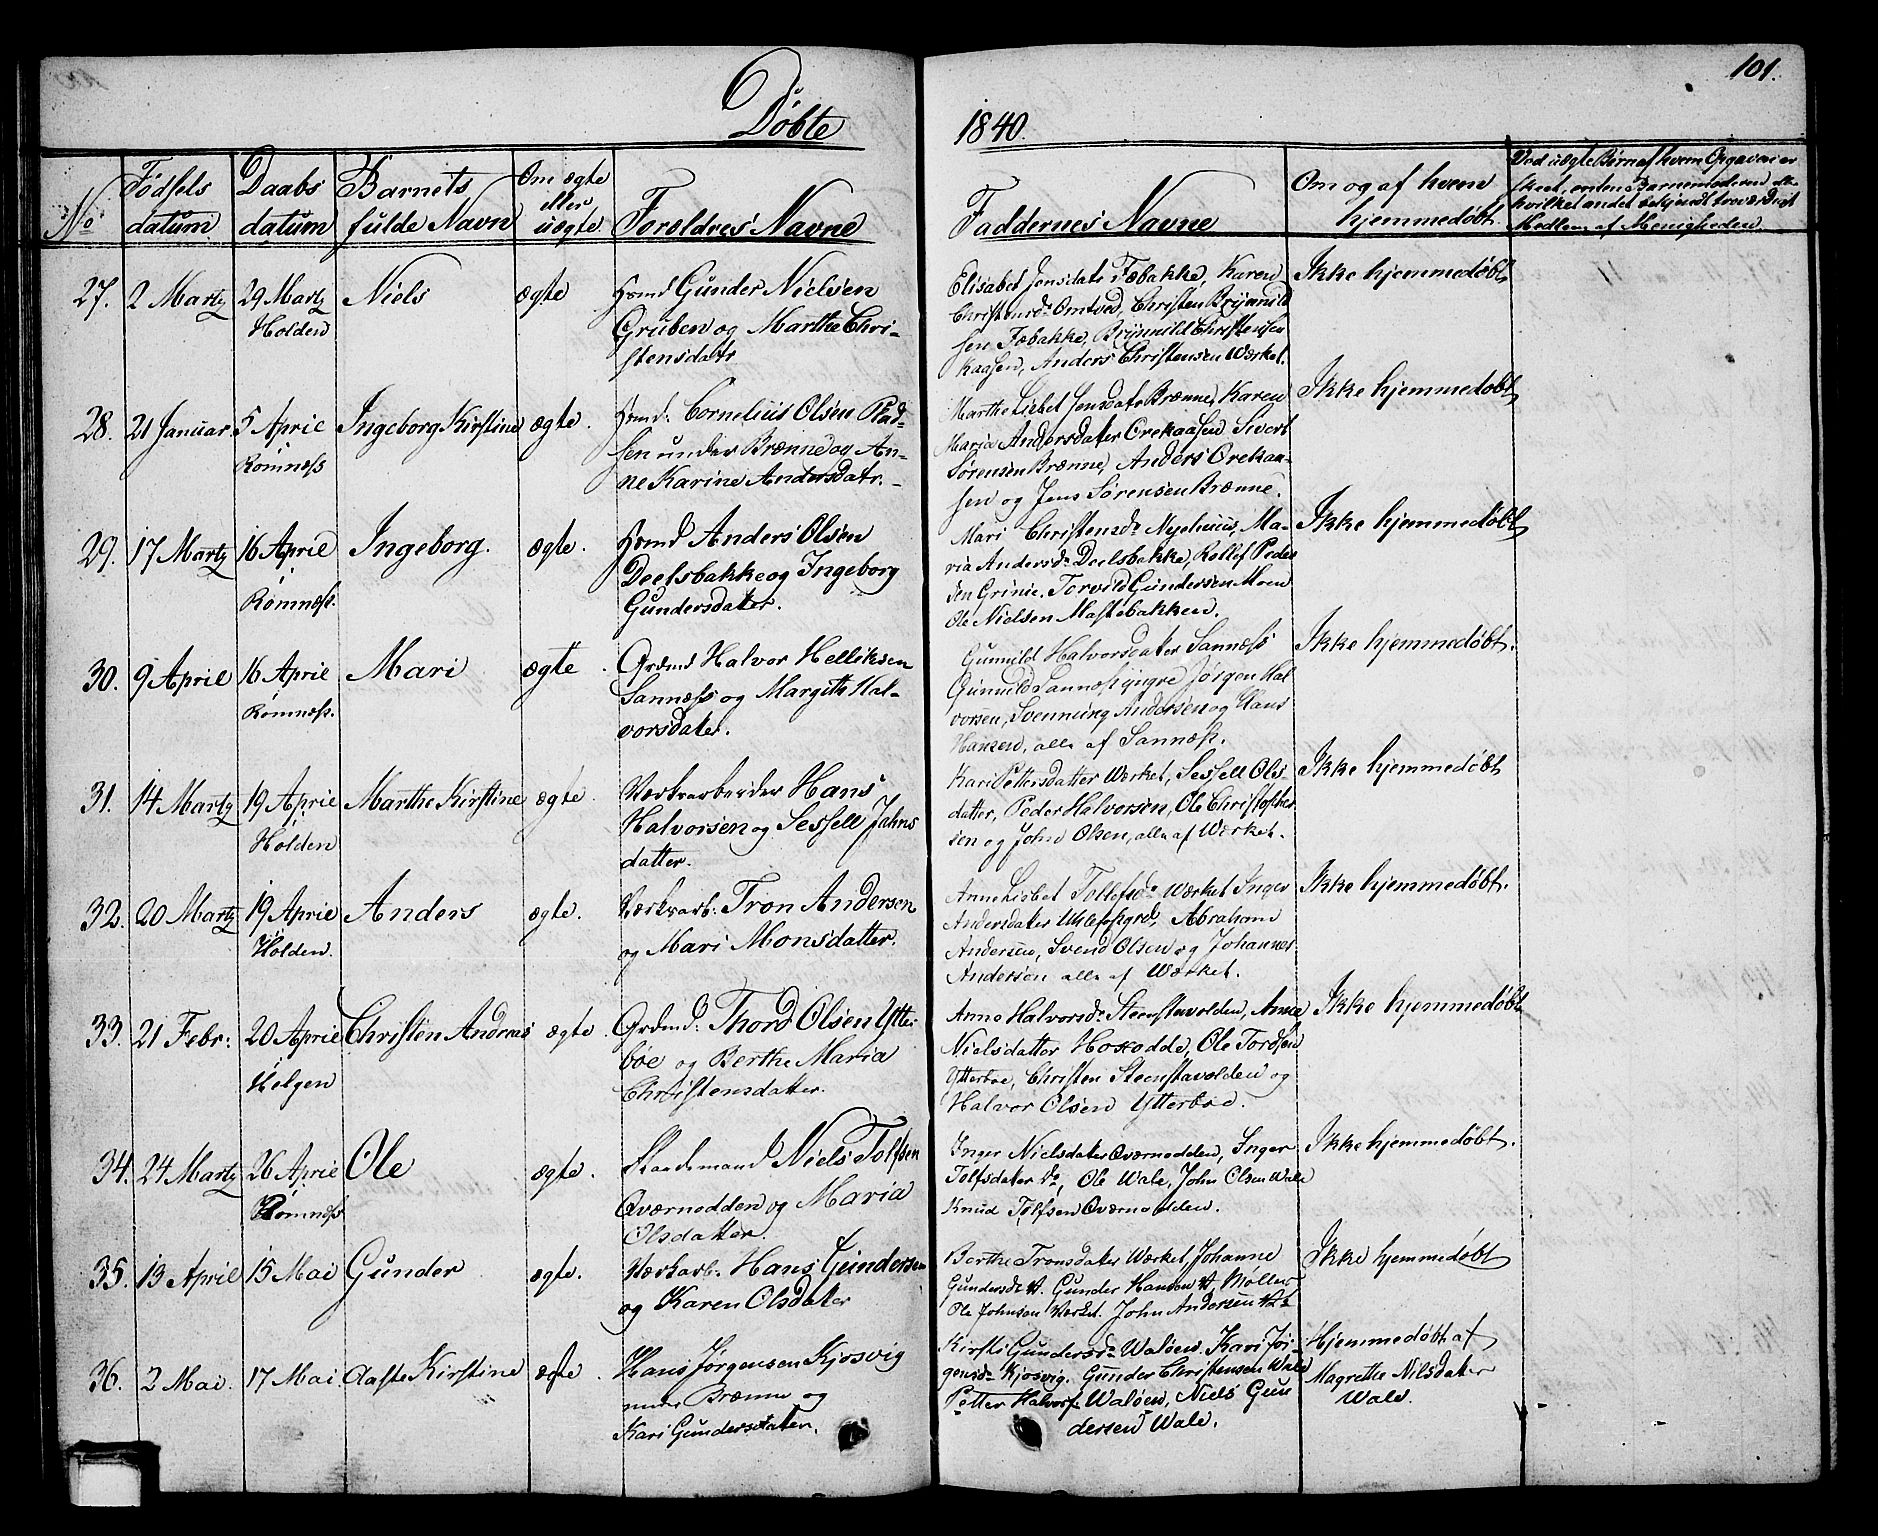 101.
Døbte 1840.
No
Fødsels datum
Daabs datum
Barnets fulde Navn
Om ægte eller uægte
Foreldres Navne
Faddernes Navne
Om og af hvem hjemmedøbt
Ved uægte Børn af hvem Opgaven er
skeet, enten Barnemoderen eller
hvilket andet bekjendt troværdigt
Medlem af Menigheden
27. 2 Martz 29 Martz Niels ægte Gunder Nielsen
Holden
Gruben og Marthe Chri-
stensdatr
Elisabet Jensdatr Fæbakke, Karen
Christensdr Omtved, Christen Brynild
sen Fæbakke, Brynnild Christensen
Kaasen, Anders Christensen Værket.
Ikke hjemmedøbt
28. 21 Januar 5 April Ingeborg Kirstine ægte. Cornelius Olsen Plad-
Romnæss
sen under Brænne og An-
ne Karine Andersdatr.
Marthe Lisbet Jensdatr Brænne, Karen
Maria Andersdater Orekaasen Sivert
Sørensen Brænne, Anders Orekaa-
sen og Jens Sørensen Brænne.
Ikke hjemmedøbt
29. 17 Martz 16 April Ingeborg. ægte. Anders Olsen
Romnæss.
Deelsbakke og Ingeborg
Gundersdater.
Mari Christensdr Nyehuus, Ma-
ria Andersdr Deelsbakke, Rollef Peder
sen Grinie, Torvild Gundersen Moen
Ole Nielsen Mastebakken.
Ikke hjemmedøbt
30. 9 April 16 April Mari ægte. Grdmd Halvor Helliksen
Romnæss.
Sannæss og Margith Hal-
vorsdater.
Gunnild Halvorsdater Sannæss
Gunnild Sannæss yngre Jørgen Hal
vorsen, Svennung Andersen og Hans
Hansen, alle af Sannæss.
Ikke hjemmedøbt.
31. 14 Martz 19 April Marthe Kirstine ægte. Værksarbeider Hans
Holden
Halvorsen og Sessell Jahns
datter.
Kari Pettersdatter Værket, Sessell Ols-
datter, Peder Halvorsen, Ole Christopher
sen og John Olsen, alle af Værket.
Ikke hjemmedøbt
32. 20 Martz 19 April Anders ægte. Værksarb: Tron Andersen
Holden.
og Mari Monsdatter.
Anne Lisbet Tollefsdr Værket Inger
Andersdater, Abraham
Andersen, Svend Olsen og Johannes
Andersen alle af Værket.
Ikke hjemmedøbt.
33. 21 Febr: 20 April Christen Andreas ægte. Grdmd: Thord Olsen Ytter
Helgen
böe og Berthe Maria
Christensdatter.
Anne Halvorsdr Steenstavolden, Anne
Nielsdatter Hoxodde, Ole Tordsen
Ytterboe, Christen Steenstavolden og
Halvor Olsen Ytterboe.
Ikke hjemmedøbt
34. 24 Martz 26 April Ole ægte. Niels Tolfsen
Romnæss
Qværnodden og Maria
Olsdatter.
Inger Nielsdater Qværnodden, Inger
Tolfsdater do, Ole Wale, John Olsen Wale
Knud Tolfsen Qværnodden.
Ikke hjemmedøbt.
35. 13 April 15 Mai Gunder ægte. Værksarb. Hans Gundersen
og Karen Olsdater
Berthe Tronsdater Værket, Johanne
Gundersdr. Gunder Hansen Møller
Ole Johnsen Værket. John Andersen
Ikke hjemmedøbt
36. 2 Mai. 17 Mai. Aaste Kirstine ægte. Hans Jørgensen Kjosvig
under Brænne og
Kari Gundersdater.
Kirsti Gundersdr Waløen. Kari Jör-
gensdr Kjosvig. Gunder Christensen Wale
Petter Halvors. Waløen, Niels Gun
dersen Wale.
Hjemmedøbt af
Magrethe Nilsdater
Wale.